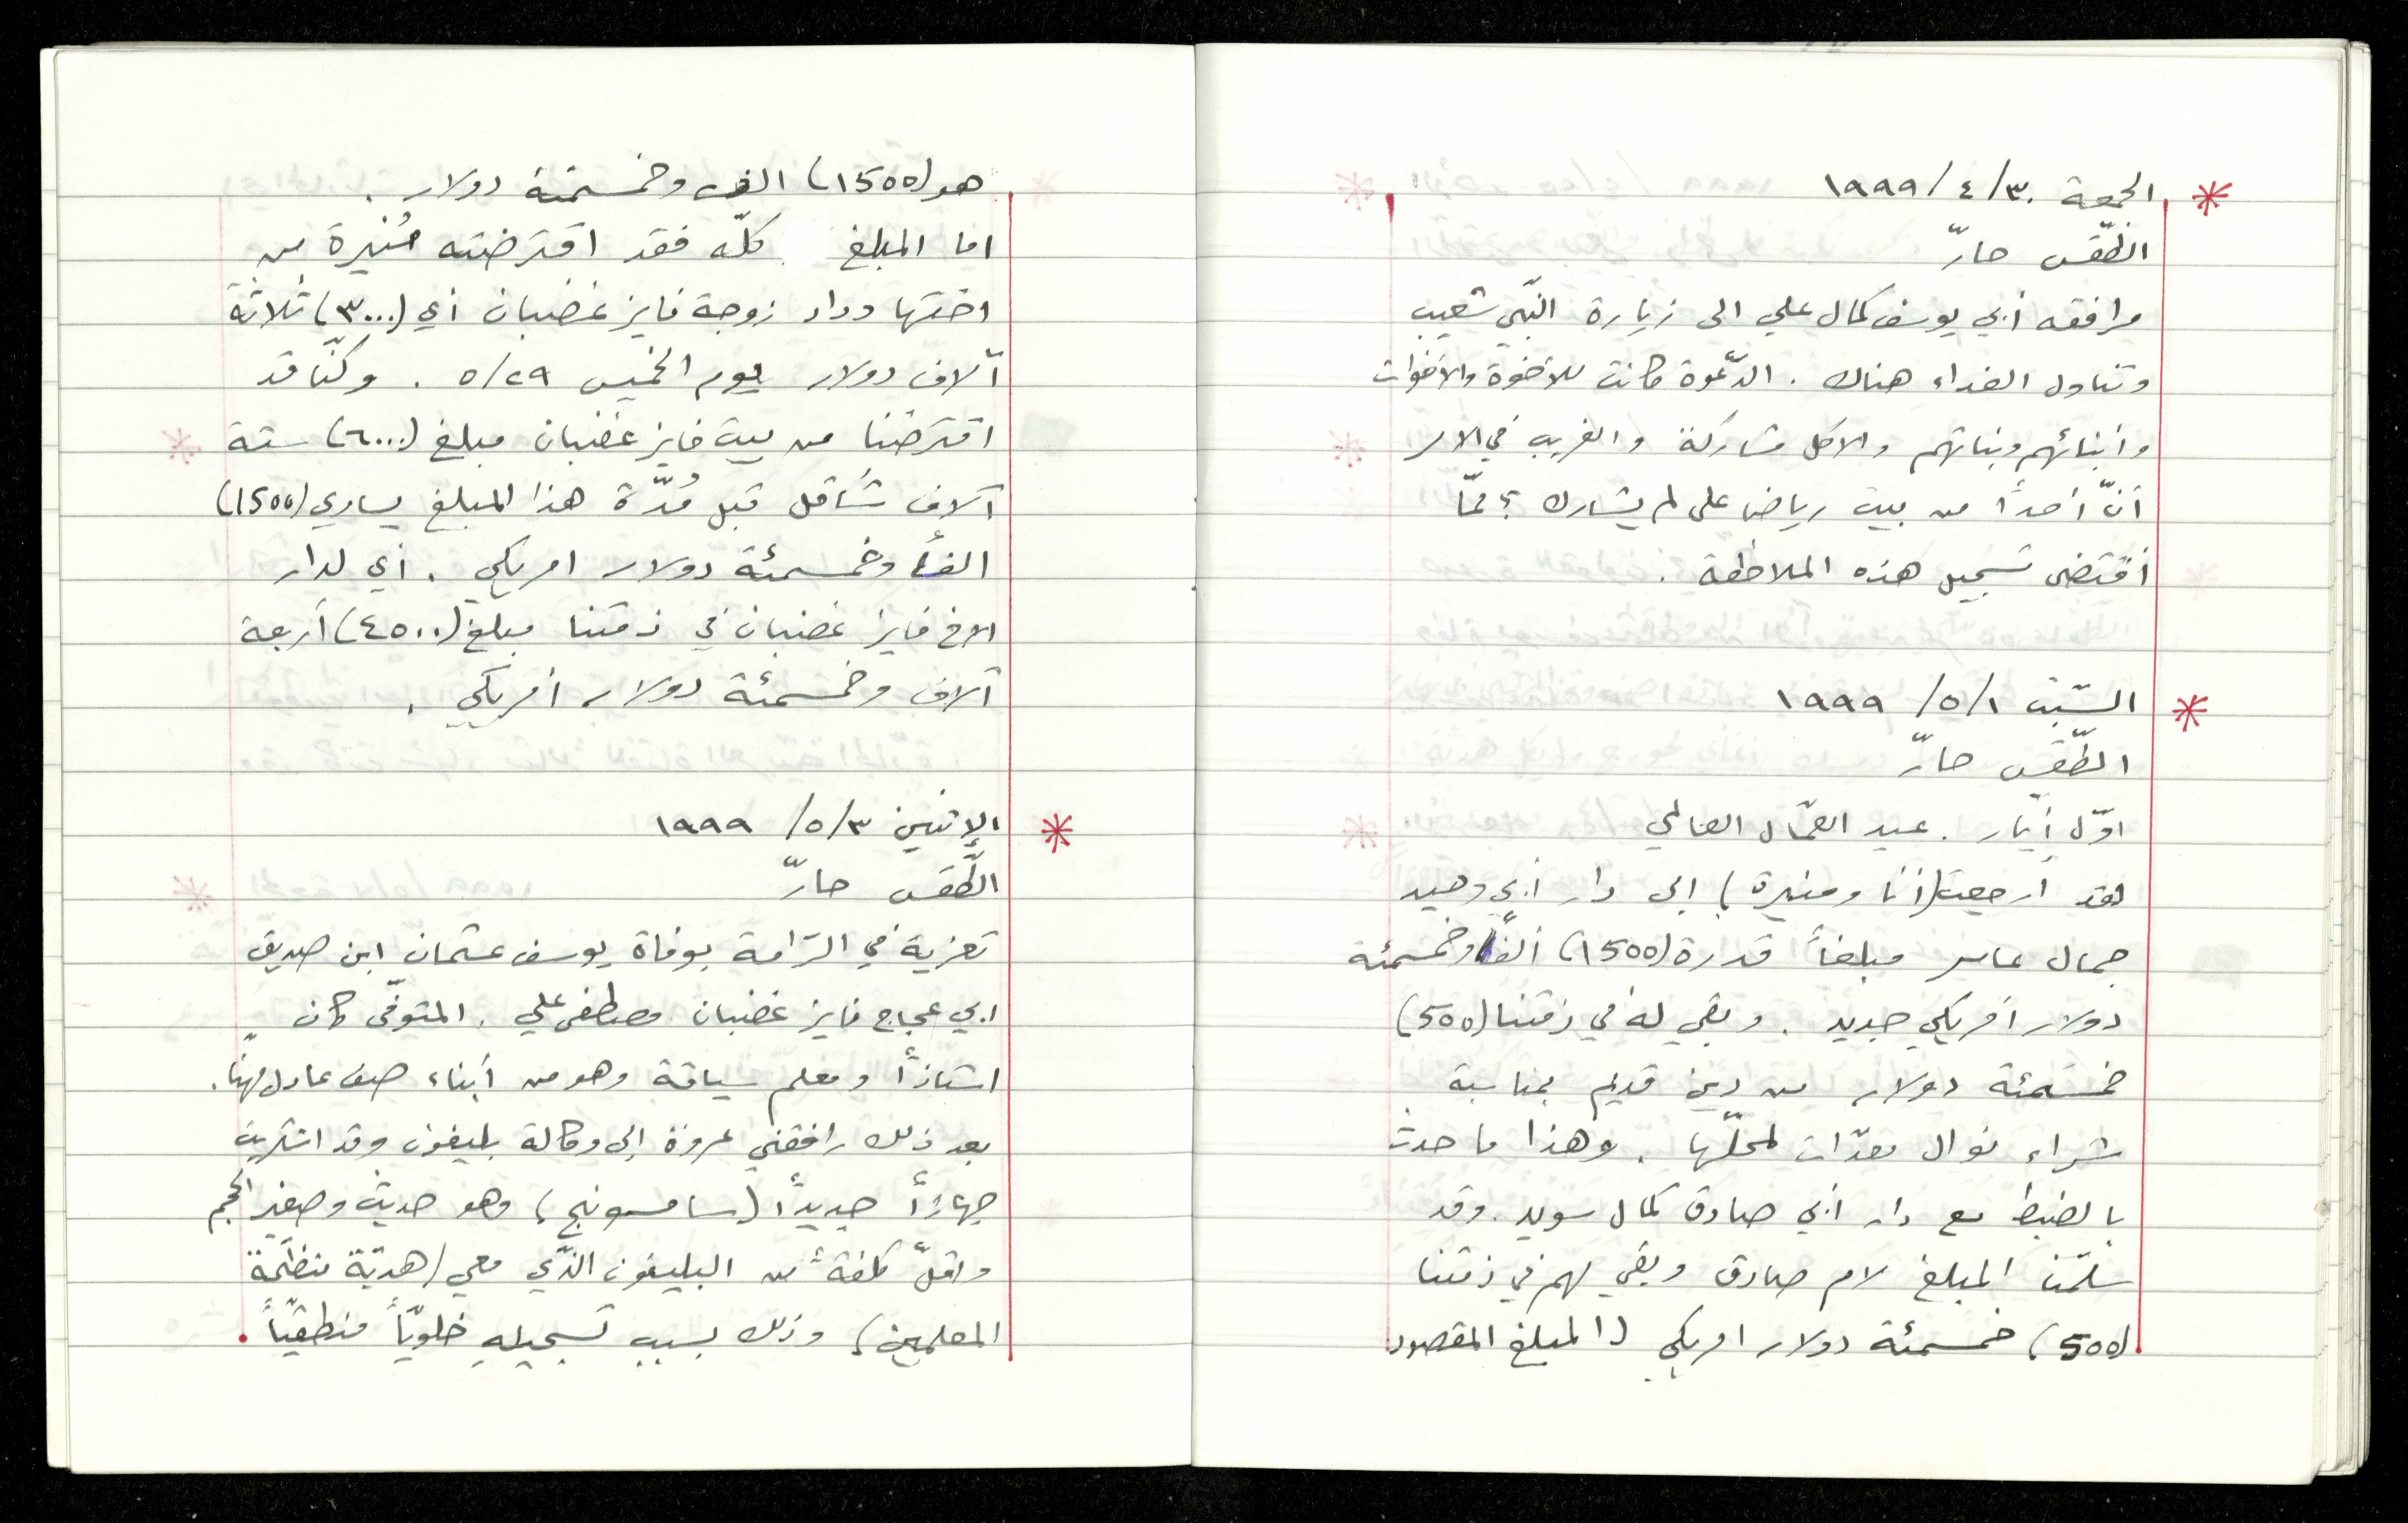 الجمعة ٣٠/٤/١٩٩٩
الطّقس حارّ
مرافقه أبي يوسف كمال علي الى زيارة النّبي شعيب
وتناول الغداء هناك . الدّعوة كانت للاخوة والاخوات
وأبنائهم وبناتهم والاكل مشاركة والغريب في الامر
أنّ أحداً من بيت رياض علي لم يشارك ؟ ممّا
أقتضى تسجيل هذه الملاحظة .
السّبت ١/٥/١٩٩٩
الطّقس حارّ
اوّل أيّار . عيد العمّال العالمي
لقد أرجعت (أنا ومنيرة) إلى دار أبي وحيد
جمال عامر مبلغاً قدرة (1500) ألفاً وخمسمئة
دولار أمريكي جديد . وبقي له في ذمّتنا (500)
خمسمئة دولار من دين قديم بمناسبة
شراء نوال معدّات لمحلّها . وهذا ما حدث
بالضبط مع دار أبي صادق كمال سويد . وقد
سلّمنا المبلغ لام صادق وبقي لهم في ذمّتنا
(500) خمسمئة دولار امريكي (المبلغ المقصود
هو (1500) الف وخمسمئة دولار .
اما المبلغ كلّه فقد اقترضته مُنيرة من
اختها وداد زوجة فايز غضبان أي (٣٠٠٠) ثلاثة
آلاف دولار يوم الخميس ٢٩/٥ . وكنّا قد
اقترضنا من بيت فايز غضبان مبلغ (٦٠٠٠) ستة
آلاف شاقل قبل مُدّة هذا المبلغ يساوي (1500)
الفاً وخمسمئة دولار امريكي . أي لدار
الاخ فايز غضبان في ذمّتنا مبلغ (٤٥٠٠) أربعة
آلاف وخمسمئة دولار أمريكي .
الإثنين ٣/٥/١٩٩٩
الطّقس حارّ
تعزية في الرّامة بوفاة يوسف عثمان ابن صديق
ابي عجاج فايز غضبان مصطفى علي . المتوفّى كان
استاذاً ومعلم سياقة وهو من أبناء صف عادل مهنّا .
بعد ذلك رافقني عروة إلى وكالة بليفون وقد اشتريت
جهازاً جديداً (سامسونج) وهو حديث وصغير الحجم
واقلّ كلفةً من البليفون الذّي معي (هديّة منظّمة
المعلمين) وذلك بسبب تسجيله خلويّاً منطقيّاً .